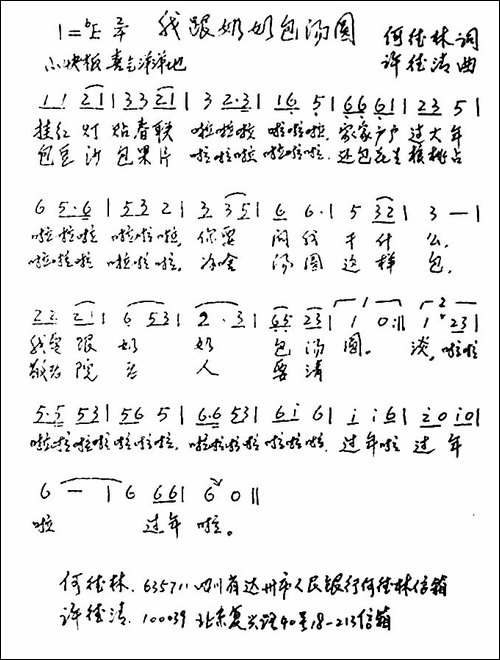 1=ᵇE 2/4 我跟奶奶包汤圆 何徒林词
小快板 喜气洋洋地 许德清曲
1 1 2 1 | 3 3 2 1 | 3 2·3 | 1 6 5 | 6 6 6 1 | 2 3 5 |
挂红 灯 贴春联 啦啦啦 啦啦啦. 家家户户 过大年
包豆 沙 包果片 啦啦啦 啦啦啦. 还包花生 核桃占
6 5·6 | 5 3 2 | 3 3 5 | 6 6· | 5 3 2 | 3 — |
啦啦啦 啦啦啦, 你要 问我 干什 么,
啦啦啦 啦啦啦, 为啥 汤圆 这样 包,
2 2 2 1 | 6 5 3 | 2·3 | 6 5 2 3 | 1 0 :‖ 1 2 3 |
我是 跟 奶 奶 包 汤 圆。 啦啦
敬老 院 老 人 要 请
5·5 5 3 | 5 6 5 | 6·6 5 3 | 6 i 6 | i i 6 | 2 0 i 0 |
啦啦啦啦 啦啦啦, 啦啦啦啦 啦啦啦. 过年啦 过 年
6 — | 6 6 6 | 6 0 ‖
啦 过年 啦。
635711 四川省达州市人民银行何徒林信箱
许德清. 100039 北京复兴路40号18-213信箱